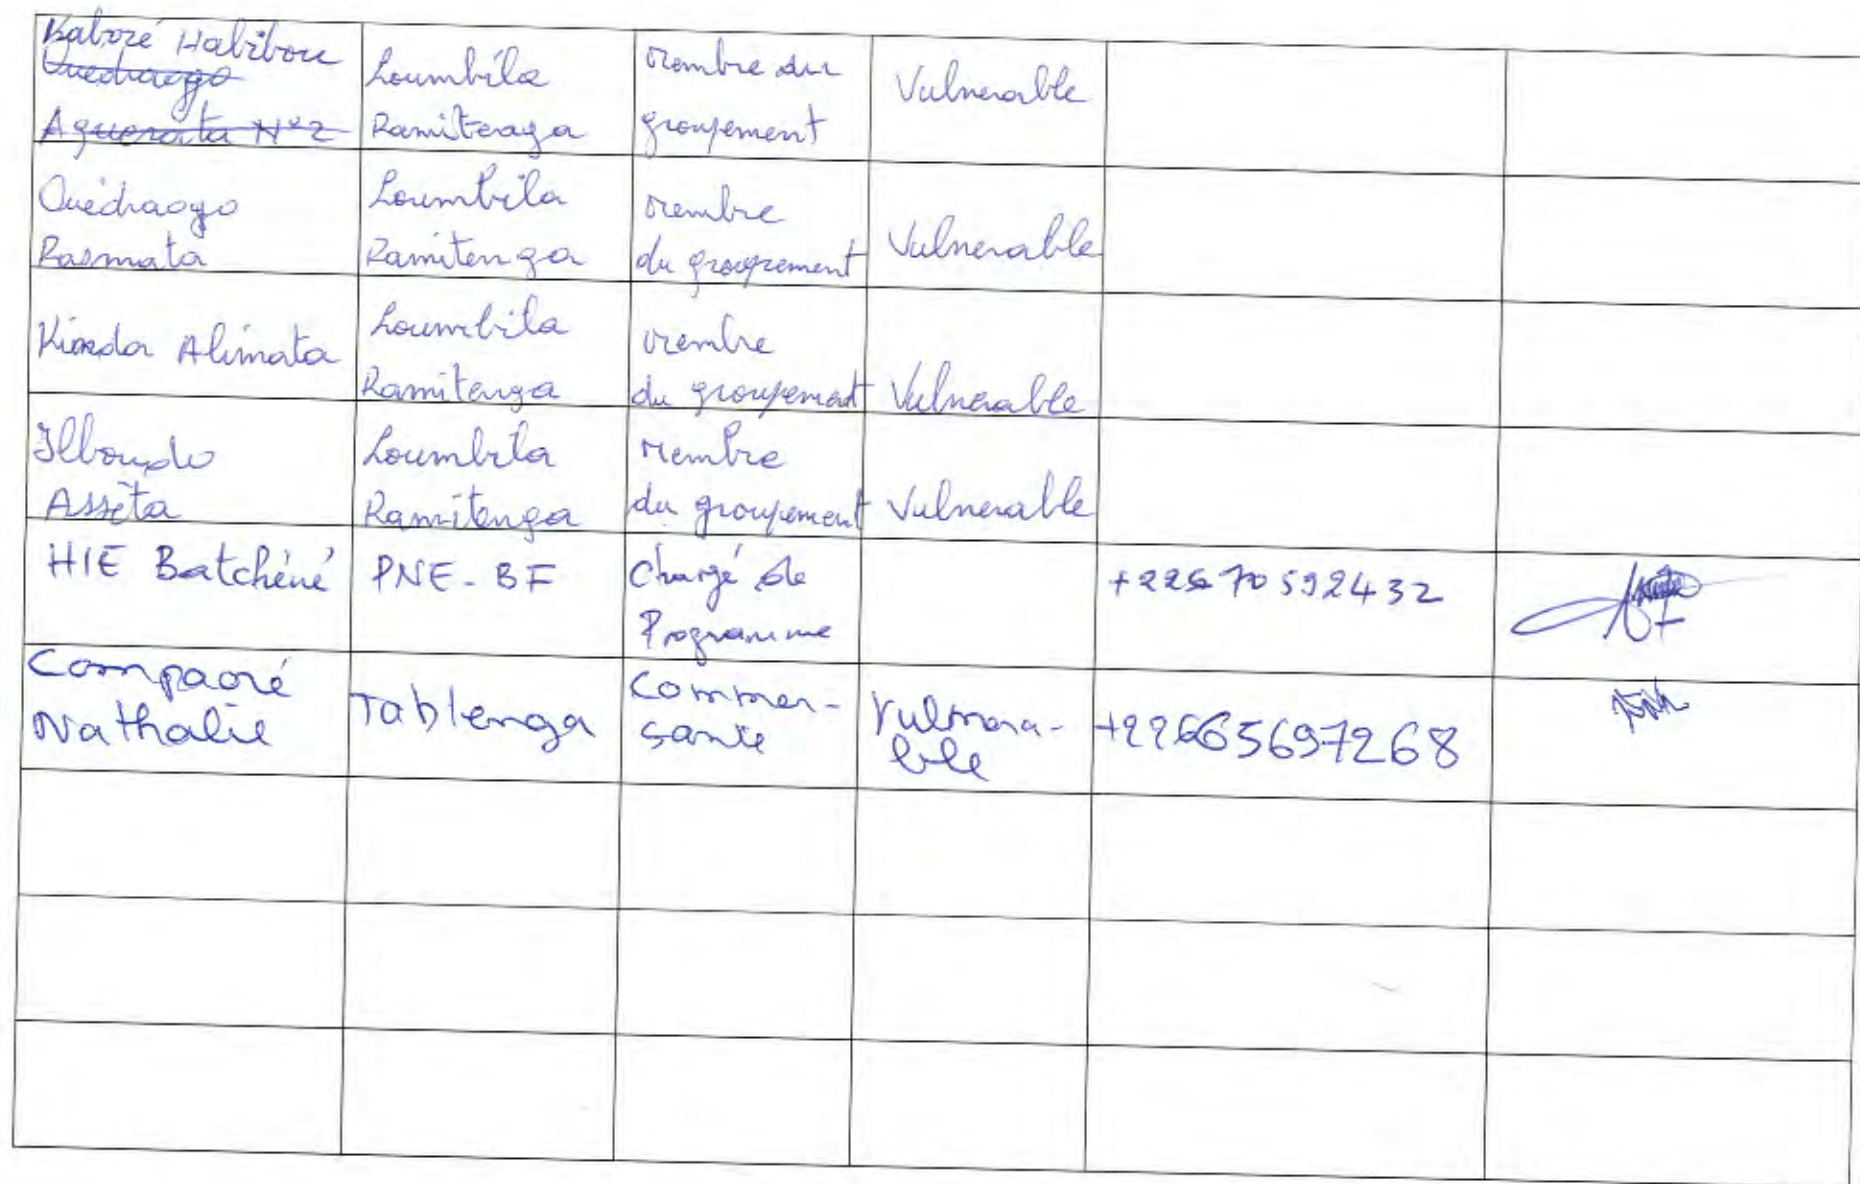 Kaboré Habibou
Ouedraogo
Aguerata N°2
Loumbila
Ramitenga
Membre du
groupement
Vulnerable
Ouédraogo
Rasmata
Loumbila
Ramitenga
Membre
du groupement
Vulnerable
Kienda Alimata
Loumbila
Ramitenga
Membre
du groupement
Vulnerable
Ilboudo
Asséta
Loumbila
Ramitenga
Membre
du groupement
Vulnerable
HIE Batchéné
PNE-BF
Chargé de
Programme
+226 70592432
Compaoré
Nathalie
Tablenga
Commer-
sante
Vulnera-
ble
+22665697268